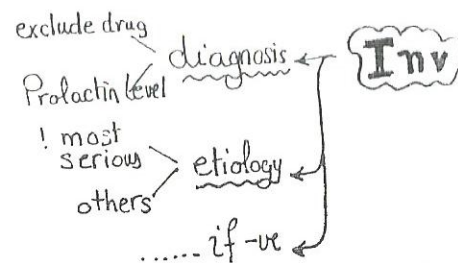 Inv
exclude drug
diagnosis
Prolactin level
! most
serious
etiology
others
...... if -ve